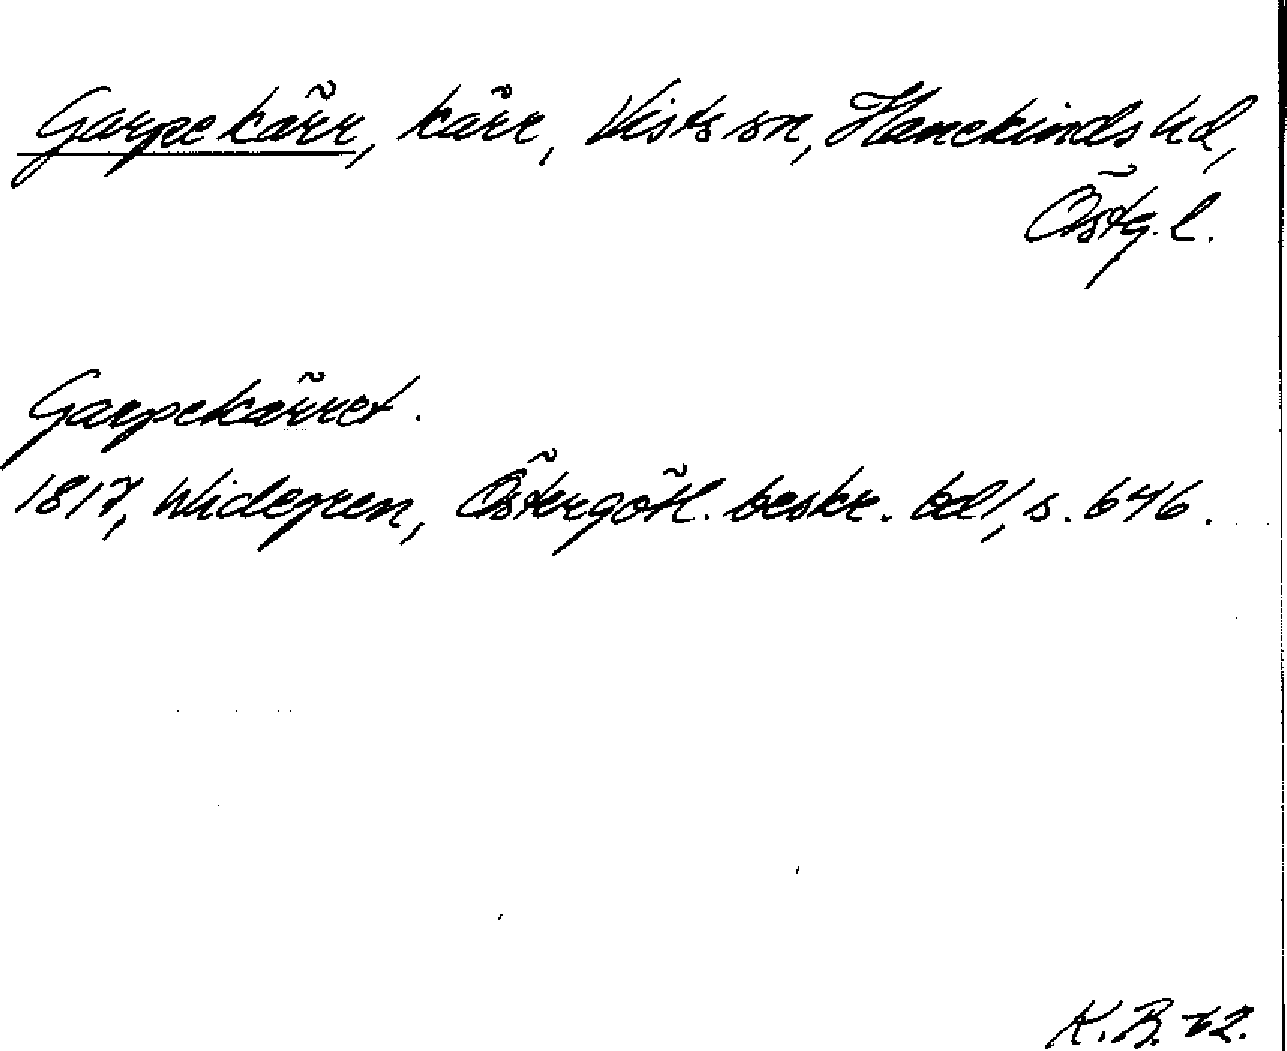 Garpekärr, kärr, Vists sn, Hanekinds hd,
Östg. l.
Garpekärret.
1817, Widegren, Östergötl. beskr. bd 1, s. 646.
K. B. 42.